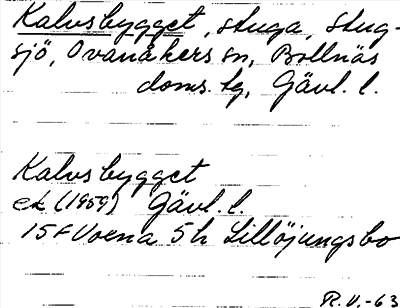 Kalvsbygget, stuga, Stug-
sjö, Ovanåkers sn, Bollnäs
doms. tg, Gävl. l.
Kalvsbygget
ek (1959) Gävl. l.
15F Voxna 5h Lillöjungsbo
R.V.-63